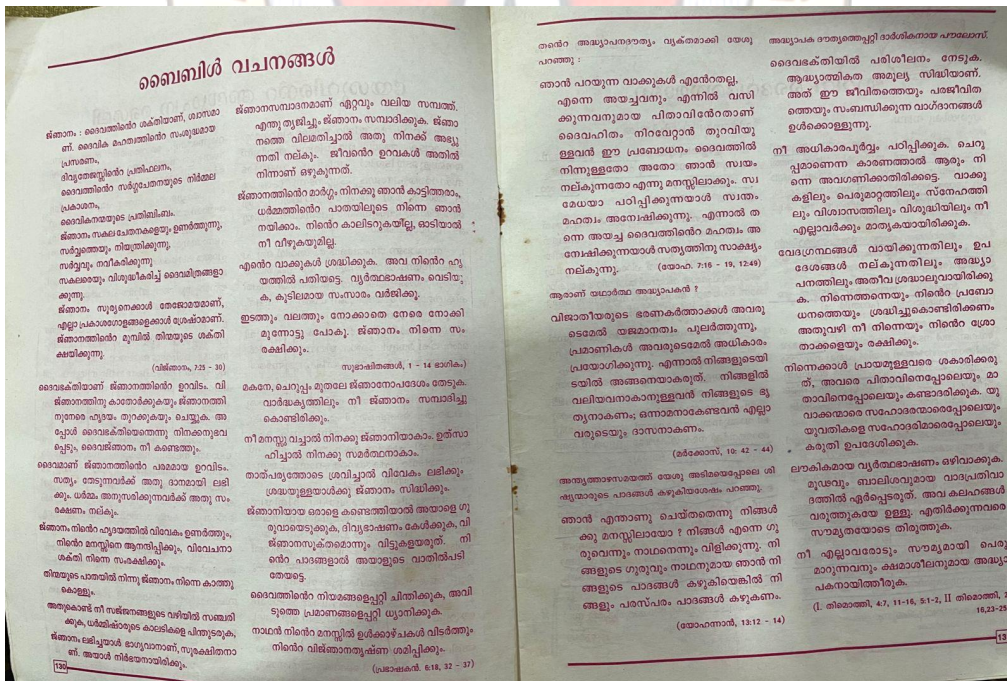 ബൈബിൾ വചനങ്ങൾ
ജ്ഞാനം : ദൈവത്തിൻെറ ശക്തിയാണ്, ശ്വാസമാ
ണ്. ദൈവിക മഹത്വത്തിൻെറ സംശുദ്ധമായ
പ്രസരണം,
ദിവ്യതേജസ്സിൻെറ പ്രതിഫലനം,
ദൈവത്തിൻെറ സർഗ്ഗചേതനയുടെ നിർമ്മല
പ്രകാശനം,
ദൈവികനന്മയുടെ പ്രതിബിംബം.
ജ്ഞാനം സകല ചേതനകളെയും ഉണർത്തുന്നു,
സർവ്വത്തെയും നിയന്ത്രിക്കുന്നു,
സർവ്വവും നവീകരിക്കുന്നു
സകലരെയും വിശുദ്ധീകരിച്ച് ദൈവമിത്രങ്ങളാ
ക്കുന്നു.
ജ്ഞാനം സൂര്യനെക്കാൾ തേജോമയമാണ്,
എല്ലാ പ്രകാശഗോളങ്ങളെക്കാൾ ശ്രേഷ്ഠമാണ്.
ജ്ഞാനത്തിൻെറ മുമ്പിൽ തിന്മയുടെ ശക്തി
ക്ഷയിക്കുന്നു.
(വിജ്ഞാനം, 7:25 - 30)
ദൈവഭക്തിയാണ് ജ്ഞാനത്തിൻെറ ഉറവിടം. വി
ജ്ഞാനത്തിനു കാതോർക്കുകയും ജ്ഞാനത്തി
നുനേരെ ഹൃദയം തുറക്കുകയും ചെയ്യുക. അ
പ്പോൾ ദൈവഭക്തിയെന്തെന്നു നിനക്കനുഭവ
പ്പെടും, ദൈവജ്ഞാനം നീ കണ്ടെത്തും.
ദൈവമാണ് ജ്ഞാനത്തിൻെറ പരമമായ ഉറവിടം.
സത്യം തേടുന്നവർക്ക് അതു ദാനമായി ലഭി
ക്കും. ധർമ്മം അനുസരിക്കുന്നവർക്ക് അതു സം
രക്ഷണം നല്കും.
ജ്ഞാനം നിൻെറ ഹൃദയത്തിൽ വിവേകം ഉണർത്തും,
നിൻെറ മനസ്സിനെ ആനന്ദിപ്പിക്കും, വിവേചനാ
ശക്തി നിന്നെ സംരക്ഷിക്കും.
തിന്മയുടെ പാതയിൽ നിന്നു ജ്ഞാനം നിന്നെ കാത്തു
കൊള്ളും.
അതുകൊണ്ട് നീ സജ്ജനങ്ങളുടെ വഴിയിൽ സഞ്ചരി
ക്കുക, ധർമ്മിഷ്ഠരുടെ കാലടികളെ പിന്തുടരുക,
ജ്ഞാനം ലഭിച്ചയാൾ ഭാഗ്യവാനാണ്, സുരക്ഷിതനാ
ണ്. അയാൾ നിർഭയനായിരിക്കും.
130
ജ്ഞാനസമ്പാദനമാണ് ഏറ്റവും വലിയ സമ്പത്ത്.
എന്തു ത്യജിച്ചും ജ്ഞാനം സമ്പാദിക്കുക. ജ്ഞാ
നത്തെ വിലമതിച്ചാൽ അതു നിനക്ക് അഭ്യു
ന്നതി നല്കും. ജീവൻെറ ഉറവകൾ അതിൽ
നിന്നാണ് ഒഴുകുന്നത്.
ജ്ഞാനത്തിൻെറ മാർഗ്ഗം നിനക്കു ഞാൻ കാട്ടിത്തരാം,
ധർമ്മത്തിൻെറ പാതയിലൂടെ നിന്നെ ഞാൻ
നയിക്കാം. നിൻെറ കാലിടറുകയില്ല, ഓടിയാൽ
നീ വീഴുകയുമില്ല.
എൻെറ വാക്കുകൾ ശ്രദ്ധിക്കുക. അവ നിൻെറ ഹൃ
യത്തിൽ പതിയട്ടെ. വ്യർത്ഥഭാഷണം വെടിയു
ക, കുടിലമായ സംസാരം വർജിക്കൂ.
ഇടത്തും വലത്തും നോക്കാതെ നേരെ നോക്കി
മുന്നോട്ടു പോകൂ. ജ്ഞാനം നിന്നെ സം
രക്ഷിക്കും.
സുഭാഷിതങ്ങൾ, 1 - 14 ഭാഗികം)
മകനേ, ചെറുപ്പം മുതലേ ജ്ഞാനോപദേശം തേടുക.
വാർദ്ധക്യത്തിലും നീ ജ്ഞാനം സമ്പാദിച്ചു
കൊണ്ടിരിക്കും.
നീ മനസ്സു വച്ചാൽ നിനക്കു ജ്ഞാനിയാകാം. ഉത്സാ
ഹിച്ചാൽ നിനക്കു സമർത്ഥനാകാം.
താത്പര്യത്തോടെ ശ്രവിച്ചാൽ വിവേകം ലഭിക്കും.
ശ്രദ്ധയുള്ളയാൾക്കു ജ്ഞാനം സിദ്ധിക്കും.
ജ്ഞാനിയായ ഒരാളെ കണ്ടെത്തിയാൽ അയാളെ ഗു
രുവായെടുക്കുക, ദിവ്യഭാഷണം കേൾക്കുക, വി
ജ്ഞാനസൂക്തമൊന്നും വിട്ടുകളയരുത്. നി
ൻെറ പാദങ്ങളാൽ അയാളുടെ വാതിൽപടി
തേയട്ടെ.
ദൈവത്തിൻെറ നിയമങ്ങളെപ്പറ്റി ചിന്തിക്കുക, അവി
ടുത്തെ പ്രമാണങ്ങളെപ്പറ്റി ധ്യാനിക്കുക.
നാഥൻ നിൻെറ മനസ്സിൽ ഉൾക്കാഴ്ചകൾ വിടർത്തും
നിൻെറ വിജ്ഞാനതൃഷ്ണ ശമിപ്പിക്കും.
(പ്രഭാഷകൻ. 6:18, 32 - 37)
തൻെറ അദ്ധ്യാപനദൗത്യം വ്യക്തമാക്കി യേശു
പറഞ്ഞു :
ഞാൻ പറയുന്ന വാക്കുകൾ എൻേതല്ല,
എന്നെ അയച്ചവനും എന്നിൽ വസി
ക്കുന്നവനുമായ പിതാവിൻേറതാണ്
ദൈവഹിതം നിറവേറ്റാൻ തുറവിയു
ള്ളവൻ ഈ പ്രബോധനം ദൈവത്തിൽ
നിന്നുള്ളതോ അതോ ഞാൻ സ്വയം
നല്കുന്നതോ എന്നു മനസ്സിലാക്കും. സ്വ
മേധയാ പഠിപ്പിക്കുന്നയാൾ സ്വന്തം
മഹത്വം അന്വേഷിക്കുന്നു. എന്നാൽ ത
ന്നെ അയച്ച ദൈവത്തിൻെറ മഹത്വം അ
ന്വേഷിക്കുന്നയാൾ സത്യത്തിനു സാക്ഷ്യം
നല്കുന്നു. (യോഹ. 7:16 - 19, 12:49)
ആരാണ് യഥാർത്ഥ അദ്ധ്യാപകൻ ?
വിജാതീയരുടെ ഭരണകർത്താക്കൾ അവരു
ടെമേൽ യജമാനത്വം പുലർത്തുന്നു,
പ്രമാണികൾ അവരുടെമേൽ അധികാരം
പ്രയോഗിക്കുന്നു. എന്നാൽ നിങ്ങളുടെയി
ടയിൽ അങ്ങനെയാകരുത്. നിങ്ങളിൽ
വലിയവനാകാനുള്ളവൻ നിങ്ങളുടെ ഭൃ
ത്യനാകണം; ഒന്നാമനാകേണ്ടവൻ എല്ലാ
വരുടെയും ദാസനാകണം.
(മർക്കോസ്, 10: 42 - 44)
അന്ത്യത്താഴസമയത്ത് യേശു അടിമയെപ്പോലെ ശി
ഷ്യന്മാരുടെ പാദങ്ങൾ കഴുകിയശേഷം പറഞ്ഞു.
ഞാൻ എന്താണു ചെയ്തതെന്നു നിങ്ങൾ
ക്കു മനസ്സിലായോ ? നിങ്ങൾ എന്നെ ഗു
രുവെന്നും നാഥനെന്നും വിളിക്കുന്നു. നി
ങ്ങളുടെ ഗുരുവും നാഥനുമായ ഞാൻ നി
ങ്ങളുടെ പാദങ്ങൾ കഴുകിയെങ്കിൽ നി
ങ്ങളും പരസ്പരം പാദങ്ങൾ കഴുകണം.
(യോഹന്നാൻ, 13:12 - 14)
അദ്ധ്യാപക ദൗത്യത്തെപ്പറ്റി ദാർശികനായ പൗലോസ്.
ദൈവഭക്തിയിൽ പരിശീലനം നേടുക.
ആദ്ധ്യാത്മികത അമൂല്യ സിദ്ധിയാണ്.
അത് ഈ ജീവിതത്തെയും പരജീവിത
ത്തെയും സംബന്ധിക്കുന്ന വാഗ്ദാനങ്ങൾ
ഉൾക്കൊള്ളുന്നു.
നീ അധികാരപൂർവ്വം പഠിപ്പിക്കുക. ചെറു
പ്പമാണെന്ന കാരണത്താൽ ആരും നി
ന്നെ അവഗണിക്കാതിരിക്കട്ടെ. വാക്കു
കളിലും പെരുമാറ്റത്തിലും സ്നേഹത്തി
ലും വിശ്വാസത്തിലും വിശുദ്ധിയിലും നീ
എല്ലാവർക്കും മാതൃകയായിരിക്കുക.
വേദഗ്രന്ഥങ്ങൾ വായിക്കുന്നതിലും ഉപ
ദേശങ്ങൾ നല്കുന്നതിലും അദ്ധ്യാ
പനത്തിലും അതീവ ശ്രദ്ധാലുവായിരിക്കു
ക. നിന്നെത്തന്നെയും നിൻെറ പ്രബോ
ധനത്തെയും ശ്രദ്ധിച്ചുകൊണ്ടിരിക്കണം
അതുവഴി നീ നിന്നെയും നിൻെറ ശ്രോ
താക്കളെയും രക്ഷിക്കും.
നിന്നെക്കാൾ പ്രായമുള്ളവരെ ശകാരിക്കരു
ത്, അവരെ പിതാവിനെപ്പോലെയും മാ
താവിനെപ്പോലെയും കണ്ടാദരിക്കുക. യു
വാക്കന്മാരെ സഹോദരന്മാരെപ്പോലെയും
യുവതികളെ സഹോദരിമാരെപ്പോലെയും
കരുതി ഉപദേശിക്കുക.
ലൗകികമായ വ്യർത്ഥഭാഷണം ഒഴിവാക്കുക.
മൂഢവും ബാലിശവുമായ വാദപ്രതിവാ
ദത്തിൽ ഏർപ്പെടരുത്. അവ കലഹങ്ങൾ
വരുത്തുകയേ ഉള്ളൂ. എതിർക്കുന്നവരെ
സൗമ്യതയോടെ തിരുത്തുക.
നീ എല്ലാവരോടും സൗമ്യമായി പെരു
മാറുന്നവനും ക്ഷമാശീലനുമായ അദ്ധ്യാ
പകനായിത്തീരുക.
(I. തിമൊത്തി, 4:7, 11-16, 5:1-2, II തിമൊത്തി, 2
16,23-25
13